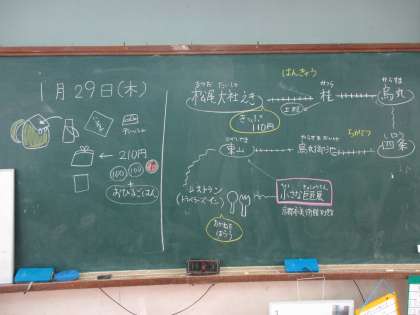 1月29日(木)
ティッシュ
← 210円
100 100 10
+
おひるごはん
はんきゅう
まつお たいしゃ
松尾大社えき
かつら
桂
からすま
烏丸
きっぷ
110円
上桂
ひがしやま
東山
からすまおいけ
烏丸御池
ちかてつ
しじょう
四条
レストラン
おかねを
はらう
小さな巨匠展
京都市美術館別館